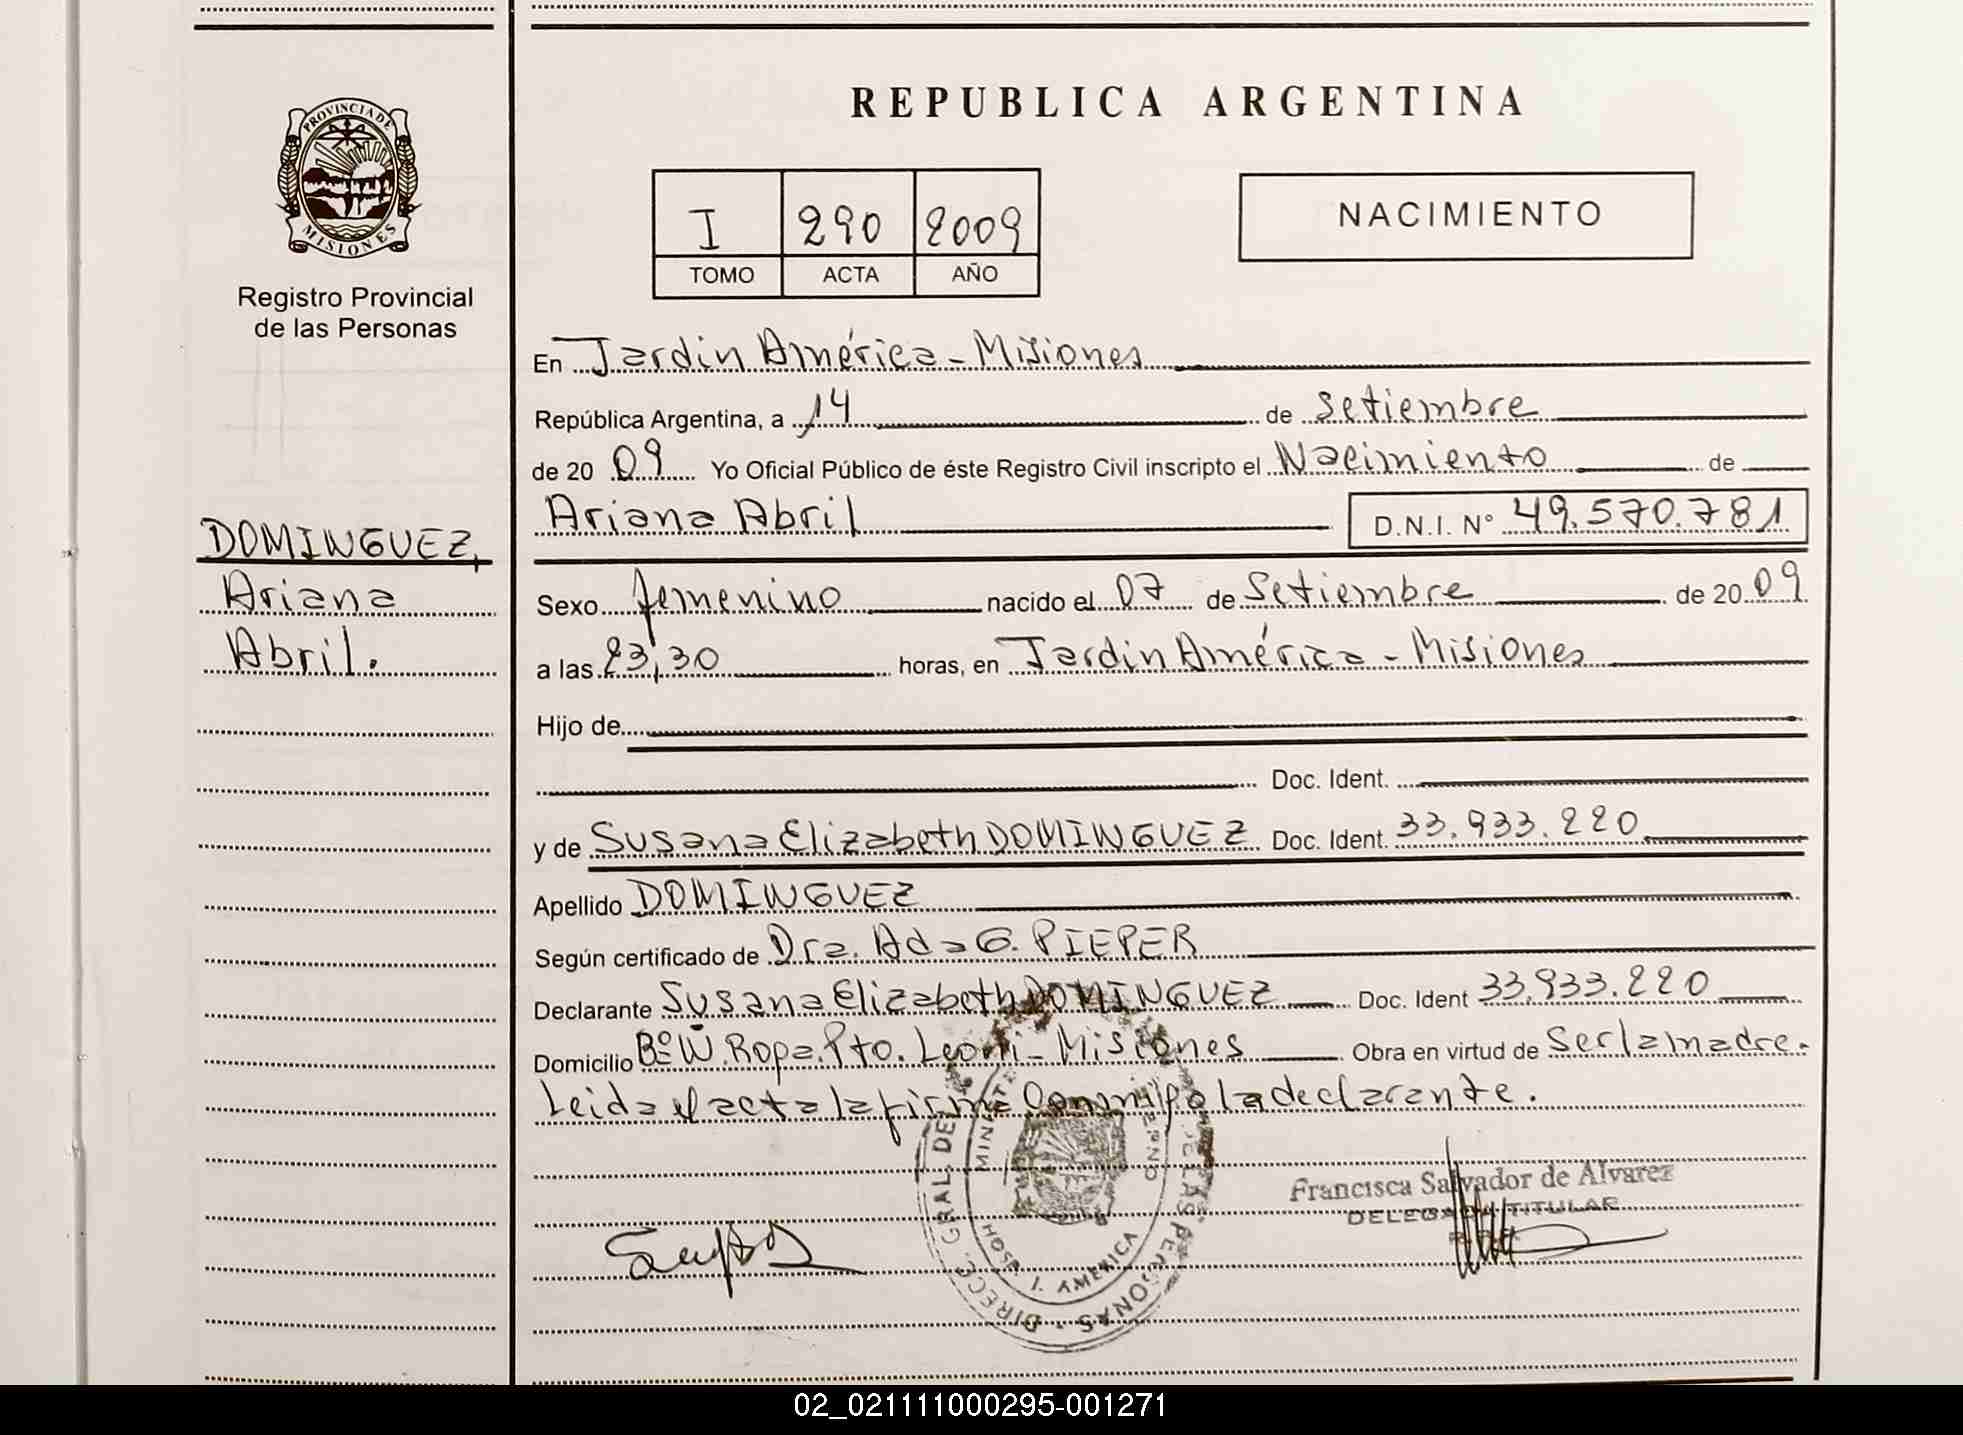 REPUBLICA ARGENTINA
PROVINCIA DE
MISIONES
Registro Provincial
de las Personas
I 290 2009
TOMO ACTA AÑO
NACIMIENTO
En Jardin América - Misiones
República Argentina, a 14 de Setiembre
de 20 09 Yo Oficial Público de éste Registro Civil inscripto el Nacimiento de
Ariana Abril D.N.I. N° 49.570.781
DOMINGUEZ,
Ariana
Abril.
Sexo femenino nacido el 07 de Setiembre de 20 09
a las 23,30 horas, en Jardin América - Misiones
Hijo de
Doc. Ident.
y de Susana Elizabeth DOMINGUEZ Doc. Ident. 33.933.220
Apellido DOMINGUEZ
Según certificado de Dra. Ada G. PIEPER
Declarante Susana Elizabeth DOMINGUEZ Doc. Ident 33.933.220
Domicilio B° W. Ropa. Pto. Leoni - Misiones Obra en virtud de Ser la madre.
Leida el acta la firma Conmigo la declarante.
DIRECC. GRAL. DE LAS PERSONAS
HOSP. J. AMERICA
Francisca Salvador de Alvarez
DELEGADA TITULAR
02_021111000295-001271